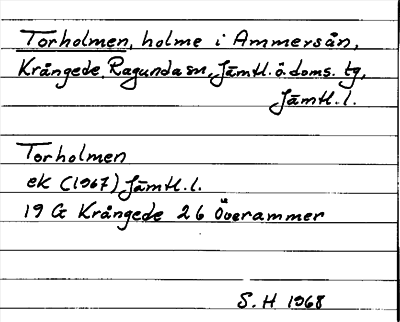 Torholmen, holme i Ammersån,
Krångede, Ragunda sn, Jämtl. ö. doms. tg,
Jämtl. l.
Torholmen
ek (1967) Jämtl. l.
19 G Krångede 26 Överammer
S. H 1968